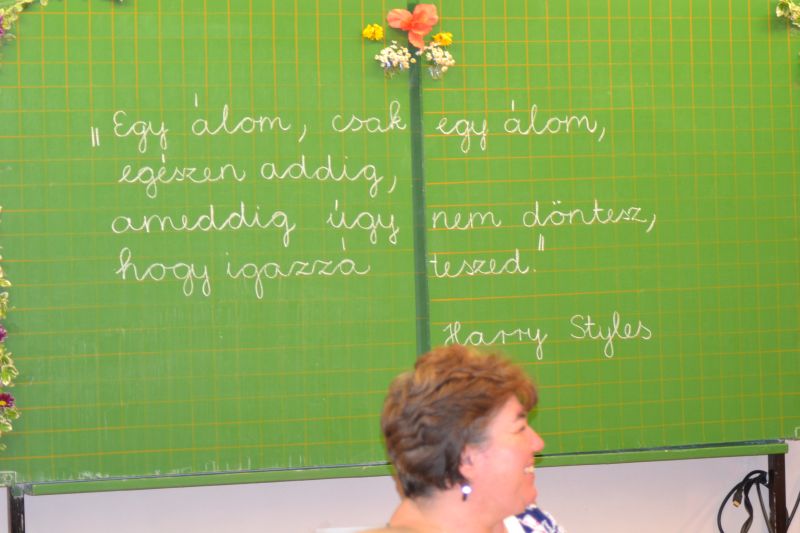 „Egy álom, csak egy álom,
egészen addig,
ameddig úgy nem döntesz,
hogy igazzá teszed."
Harry Styles